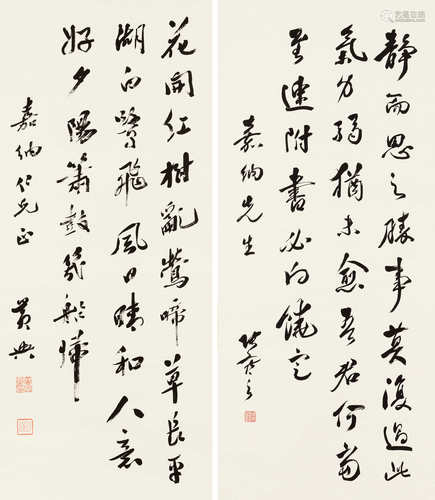 靜而思之勝事莫復過此
氣力弱猶未愈吾君何當
至速附書必向饒定
嘉納先生
花開紅樹亂鶯啼草長平
湖白鷺飛風日晴和人意
好夕陽簫鼓幾船歸
嘉納仁兄正